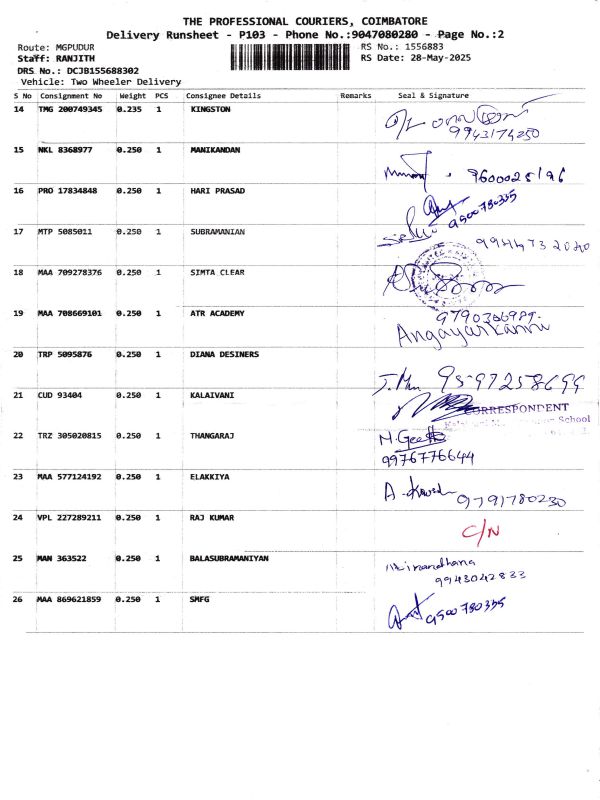 THE PROFESSIONAL COURIERS, COIMBATORE
Delivery Runsheet - P103 - Phone No.:9047080280 - Page No.:2
Route: MGPUDUR RS No.: 1556883
Staff: RANJITH RS Date: 28-May-2025
DRS No.: DCJB155688302
Vehicle: Two Wheeler Delivery
S No Consignment No Weight PCS Consignee Details Remarks Seal & Signature
14 TMG 200749345 0.235 1 KINGSTON
9943174250
15 NKL 8368977 0.250 1 MANIKANDAN
9600025196
16 PRO 17834848 0.250 1 HARI PRASAD
9500780355
17 MTP 5085011 0.250 1 SUBRAMANIAN
9944732020
18 MAA 709278376 0.250 1 SIMTA CLEAR
19 MAA 708669101 0.250 1 ATR ACADEMY 9790306989.
Angayarkanni
20 TRP 5095876 0.250 1 DIANA DESINERS
9597258699
21 CUD 93404 0.250 1 KALAIVANI
CORRESPONDENT
School
22 TRZ 305020815 0.250 1 THANGARAJ M.Geetha
9976776644
23 MAA 577124192 0.250 1 ELAKKIYA
9791780230
24 VPL 227289211 0.250 1 RAJ KUMAR
C/N
25 MAN 363522 0.250 1 BALASUBRAMANIYAN
9943042833
26 MAA 869621859 0.250 1 SMFG
9500780355